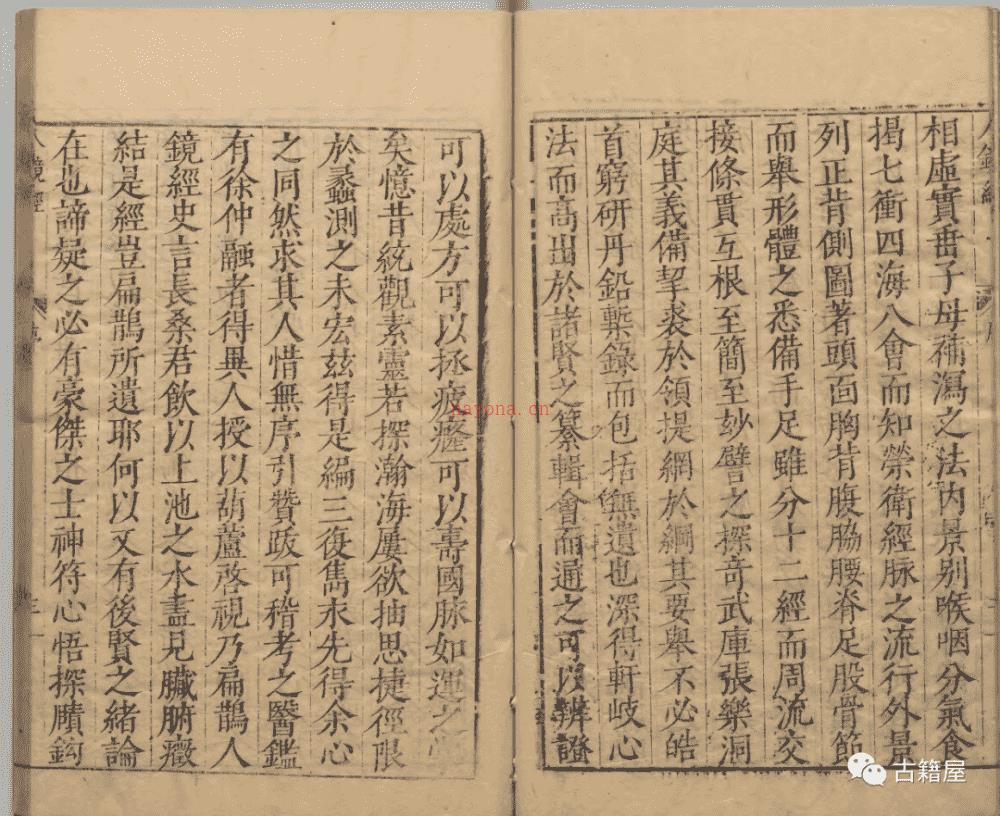 相虛實毌子母補瀉之法內景别喉咽分氣食
揭七衝四海八會而知榮衛經脉之流行外景
列正背側圖著頭面胸背腹脇腰脊足股骨節
而舉形體之悉備手足雖分十二經而周流交
接條貫互根至簡至妙譬之探奇武庫張樂洞
庭其義備挈裘於領提網於綱其要舉不必皓
首窮研丹鉛槧錄而包括無遺也深得軒岐心
法而高出於諸賢之纂輯會而通之可以辨證
可以處方可以拯疲癃可以壽國脉如運之
矣憶昔統觀素靈若探瀚海屢欲抽思捷徑限
於蠡測之未宏兹得是編三復雋永先得余心
之同然求其人惜無序引贊跋可稽考之醫鑑
有徐仲融者得異人授以葫蘆啓視乃扁鵲人
鏡經史言長桑君飲以上池之水盡見臟腑癥
結是經豈扁鵲所遺耶何以又有後賢之緒論
在也諦疑之必有豪傑之士神符心悟探賾鈎
人鏡經
nayona.cn
古籍屋